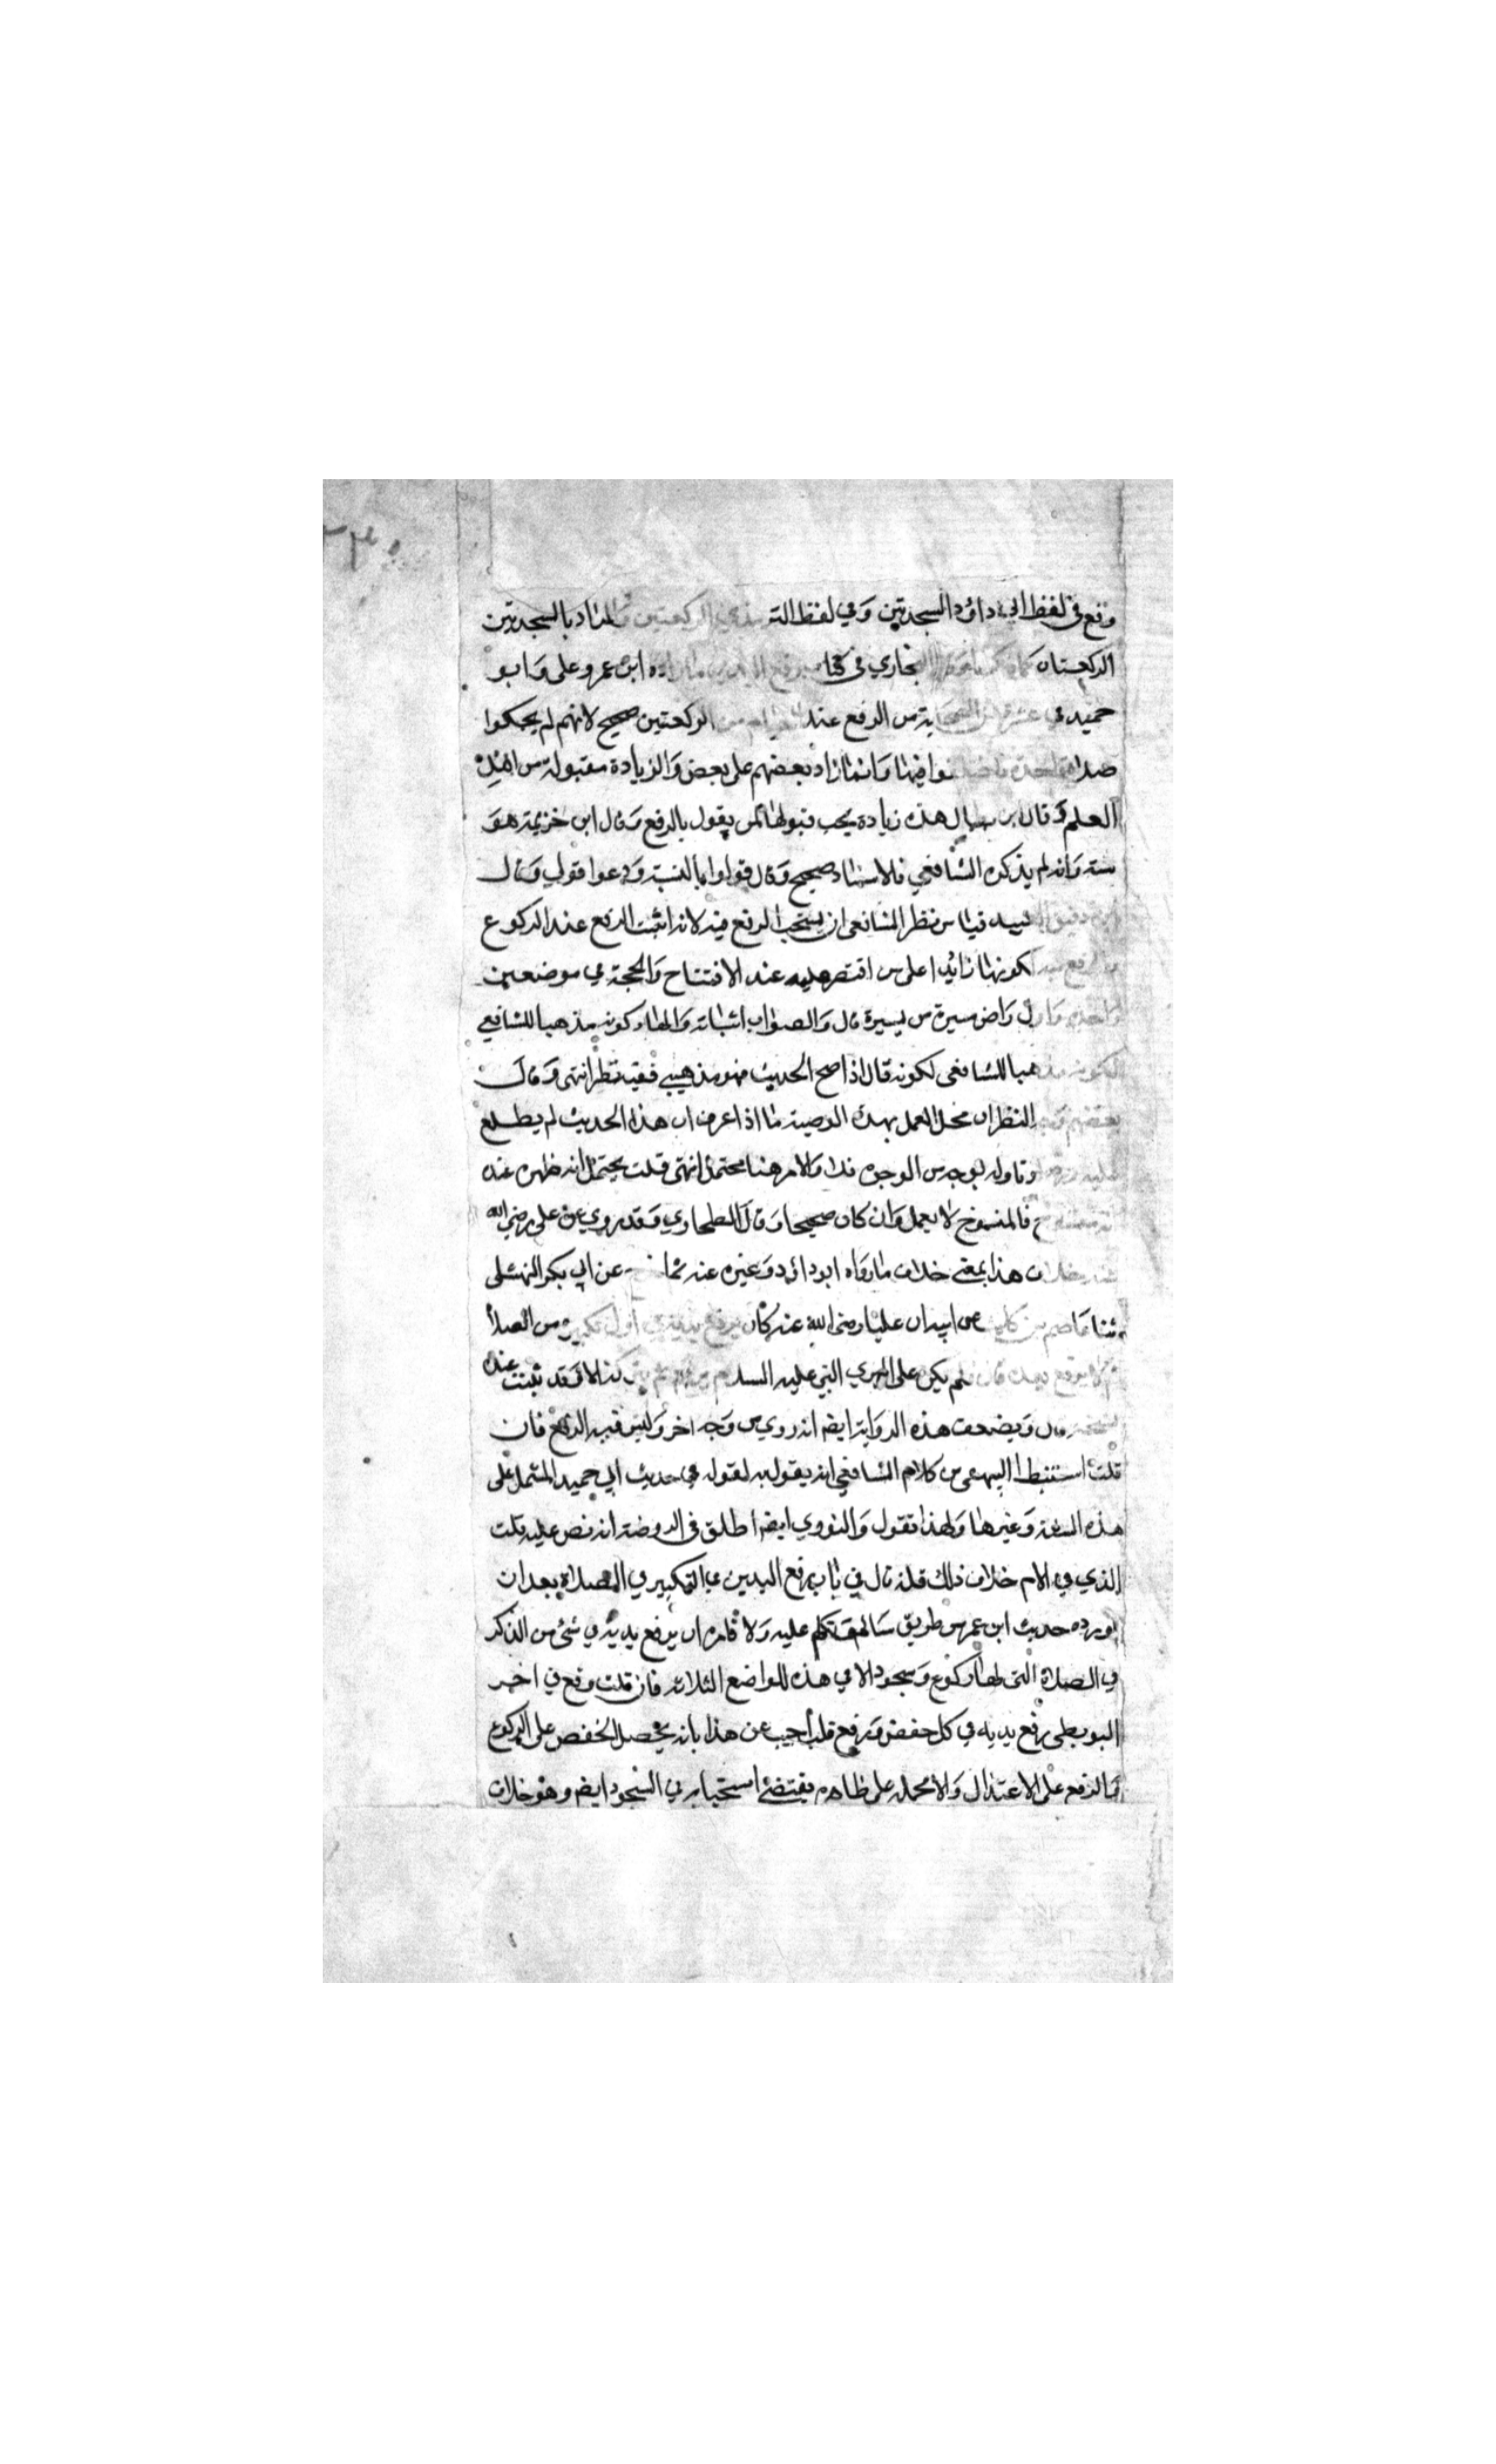 وقع في لفظ ابي داود السجدتين وفي لفظ الترمذي الركعتين والمراد بالسجدتين
الركعتان البخاري في كتاب رفع اليدين ما زاده ابن عمرو علي وابو
حميد في عشرة من الصحابة من الرفع عند القيام من الركعتين صحيح لانهم لم يحكوا
صلاة واحدة فاختلفوا فيها وانما زاد بعضهم على بعض والزيادة مقبولة من اهل
العلم وقال ابن بطال هذه زيادة يجب قبولها لمن يقول بالرفع وقال ابن خزيمة هو
سنة وانه لم يذكره الشافعي فالاسناد صحيح وقال قولوا بالسنة ودعوا قولي وقال
ابن دقيق العيد قياس نظر الشافعي ان يستحب الرفع فيه لانه اثبت الرفع عند الركوع
والرفع منه لكونها زائدا على من اقتصر عليه عند الافتتاح والحجة في موضعين
واحدة واول راض سيرة من يسيرة قال والصواب اثباته واما كونه مذهبا للشافعي
لكونه مذهبا للشافعي لكونه قال اذا صح الحديث فهو مذهبي ففيه نظر انتهى وقال
بعضهم وجه النظر ان محل العمل بهذه الوصية ما اذا عرف ان هذا الحديث لم يطلع
عليه وتاوله بوجه من الوجوه فلا والامر هنا محتمل انتهى قلت يحتمل انه ظهر عنده
انه منسوخ فالمنسوخ لا يعمل وان كان صحيحا وقال الطحاوي وقد روي عن علي رضي الله
عنه خلاف هذا يعني خلاف ما رواه ابو داود وغيره عنه عن ابي بكر النهشلي
ثنا عاصم بن كليب عن ابيه ان عليا رضي الله عنه كان يرفع يديه في اول تكبيرة من الصلاة
ثم لا يرفع بعده قال فلم يكن علي ليرى النبي عليه السلام كذا الا فقد ثبت عنده
نسخه قال ويضعف هذه الرواية ايضا انه روي من وجه اخر وليس فيه الرفع فان
قلت استنبط البيهقي من كلام الشافعي انه يقول به لقوله في حديث ابي حميد المشتمل على
هذه السنة وغيرها ولهذا نقول والنووي ايضا اطلق في الروضة انه نص عليه قلت
الذي في الام خلاف ذلك فانه قال في باب رفع اليدين في التكبير في الصلاة بعد ان
اورده حديث ابن عمر من طريق سالم وتكلم عليه ولا نامره ان يرفع يديه في شئ من الذكر
في الصلاة التي لها ركوع وسجود الا في هذه المواضع الثلاثة فان قلت وقع في اخر
البويطي يرفع يديه في كل خفض ورفع قلت اجيب عن هذا بانه يحصل الخفض على الركوع
والرفع على الاعتدال والا فحمله على ظاهره يقتضي استحبابه في السجود ايضا وهو خلاف